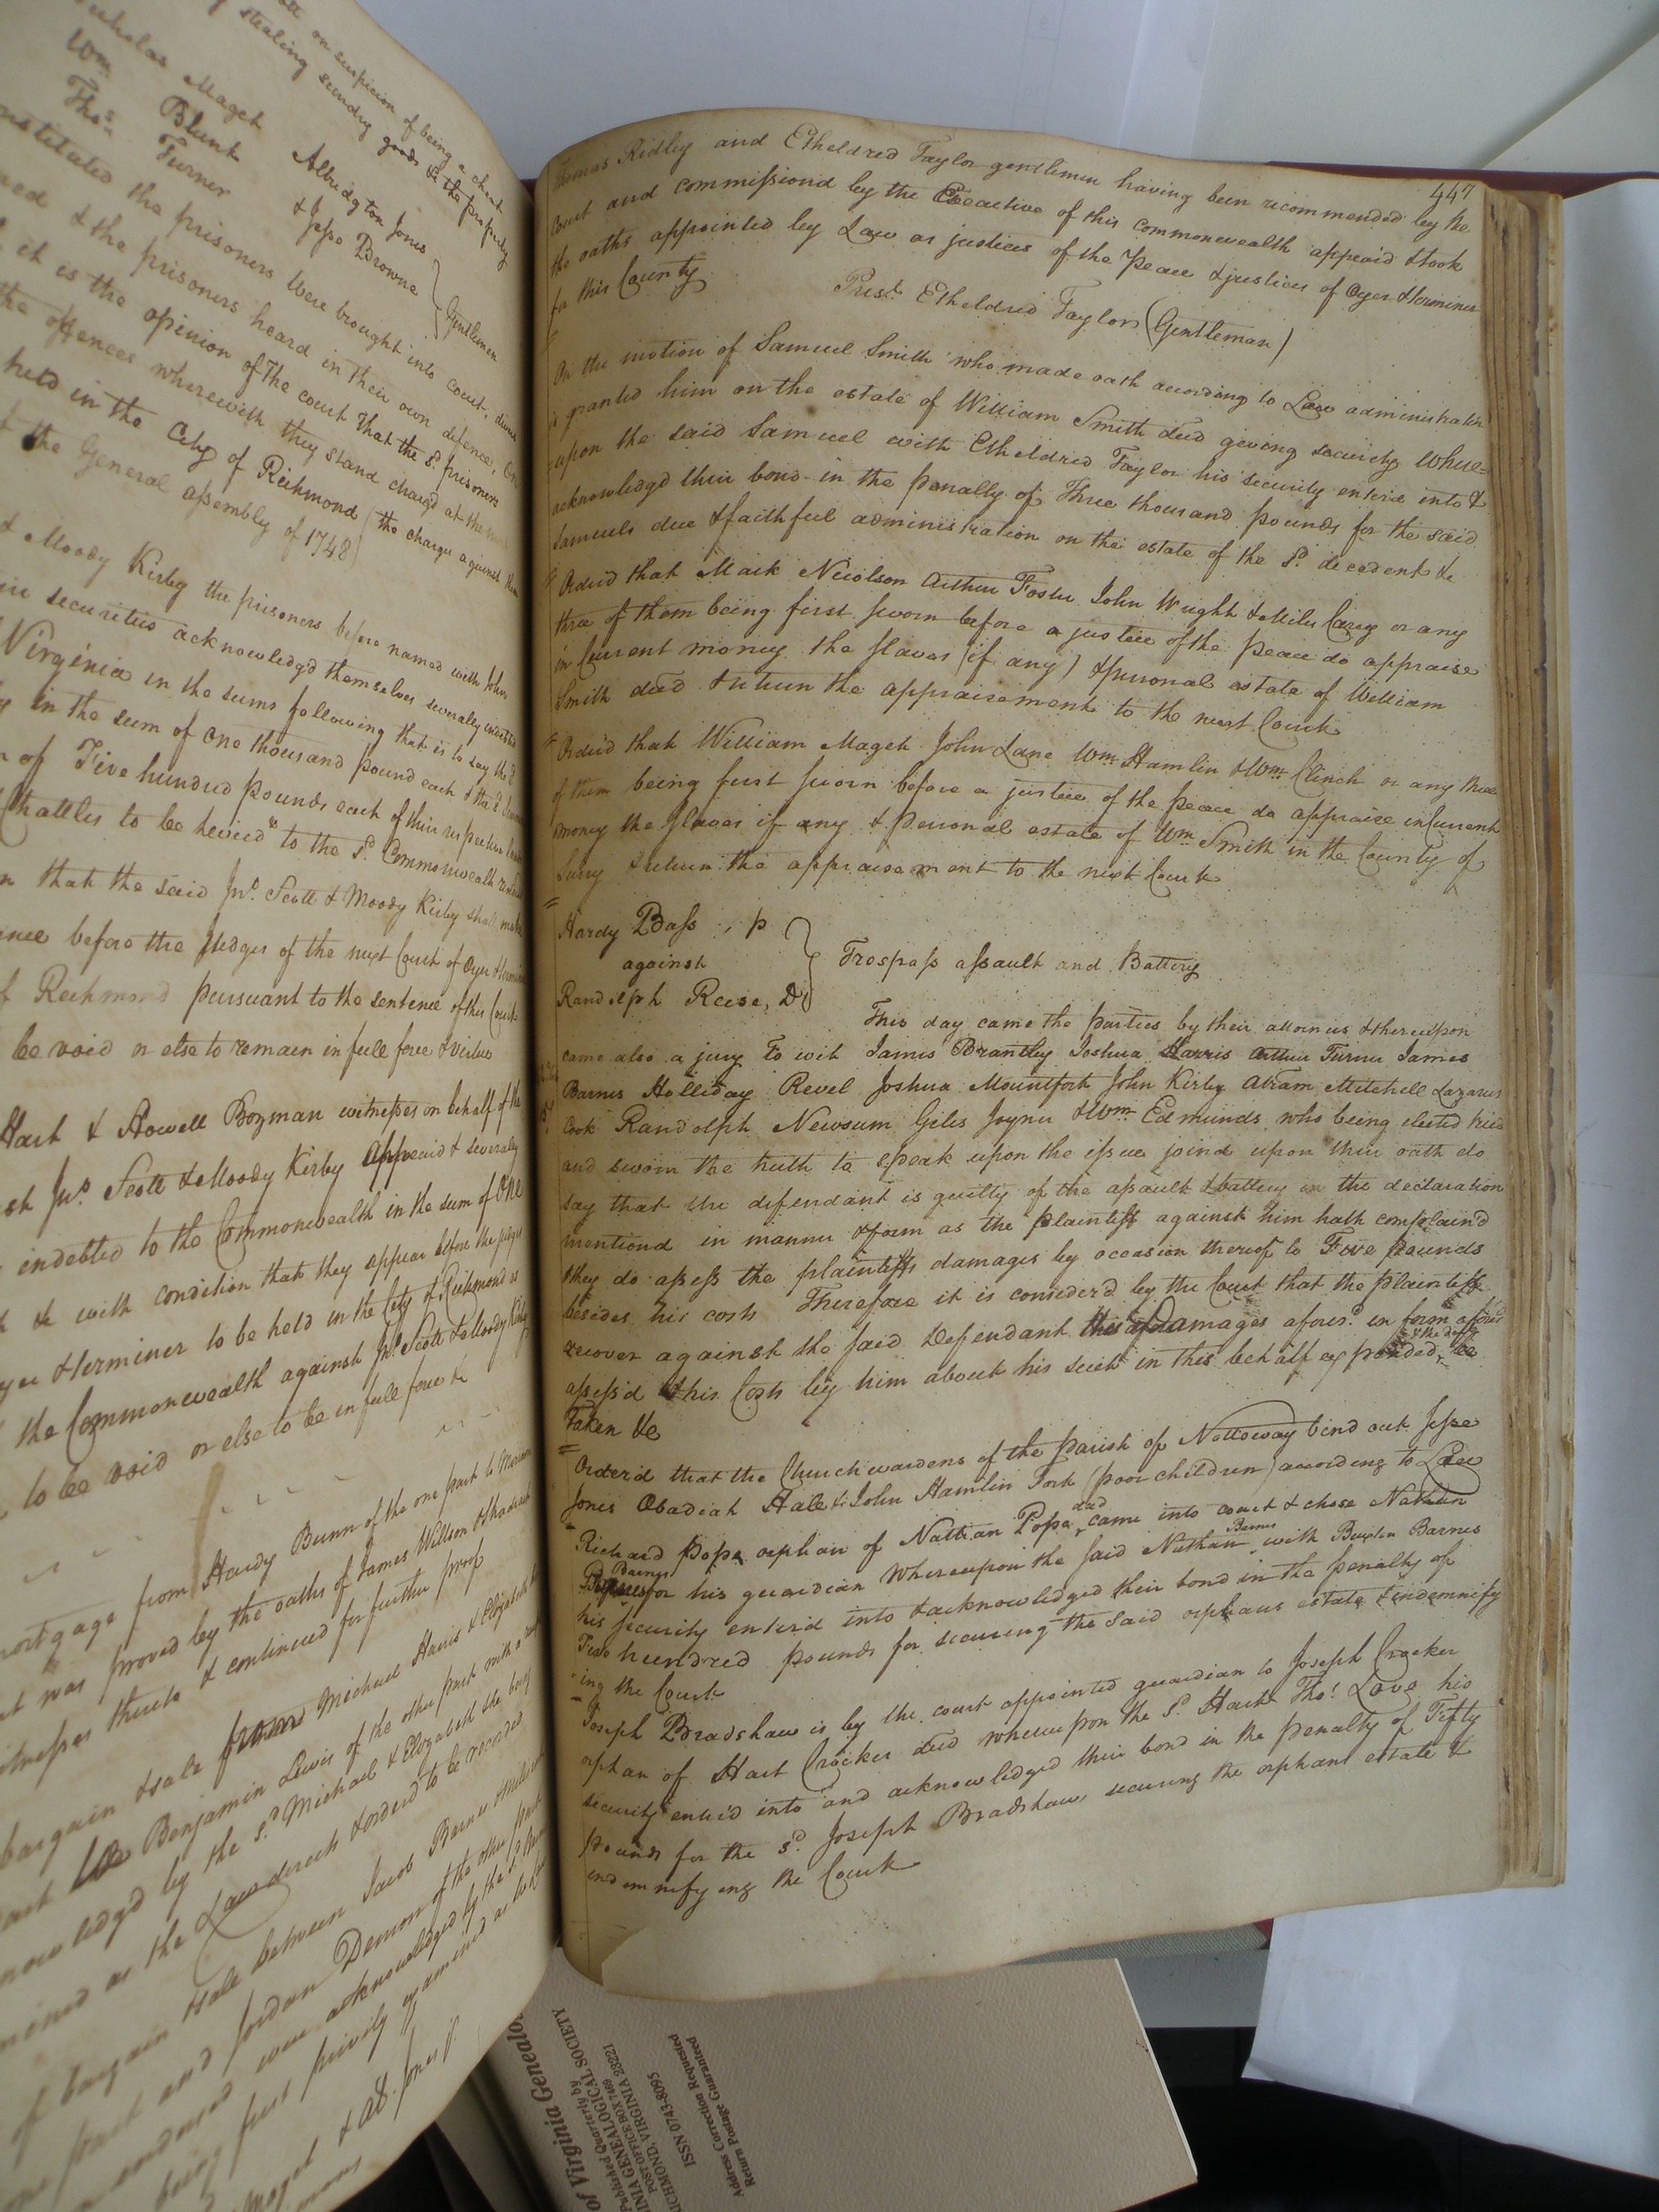 on suspicion of being a cheat
stealing sundry goods &c the property
Nicholas Maget Albridgton Jones
Wm. Blunt & Jesse Browne
Thos. Turner Gentlemen
the prisoners were brought into Court,
& the prisoners heard in their own defence,
it is the opinion of the court that the sd. prisoners
the offences wherewith they stand chargd at the
held in the City of Richmond (the charges against them
the General assembly of 1748)
& Moody Kirby the prisoners before named with John
securities acknowledgd themselves severally indebted
Virginia in the sums following that is to say the sd
in the sum of one thousand pound each & the sd
of Five hundred pounds each of their respective
Chattles to be levied &c to the sd. Commonwealth
that the said Jno. Scott & Moody Kirby shall make
before the Judges of the next Court of Oyer &
Richmond pursuant to the sentence of this Court
be void or else to remain in full force & virtue
Hart & Howell Bozman witnesses on behalf of the
Jno. Scott & Moody Kirby appeard & severally
indebted to the Commonwealth in the sum of one
&c with condition that they appear before the judges
& terminer to be held in the City of Richmond
the Commonwealth against Jno. Scott & Moody Kirby
to be void or else to be in full force &c
mortgage from Hardy Bunn of the one part to
was proved by the oaths of James Willson
witnesses thereto & continued for further proof
bargain & sale from Michael Harris & Elizabeth his
Benjamin Lewis of the other part with a
by the sd. Michael & Elizabeth the
as the Law directs & orderd to be recorded
of bargain & sale between Jacob Barnes
part and Jordan Denson of the other part
were acknowledged by the sd.
being first privily examined as
Maget
447
Thomas Ridley and Etheldred Taylor gentlemen having been recommended by the
Court and commissiond by the Executive of this commonwealth appeaid & took
the oaths appointed by Law as justices of the Peace & justices of Oyer & terminer
for this County
Prest. Etheldred Taylor (Gentleman)
On the motion of Samuel Smith who made oath according to Law administration
is granted him on the estate of William Smith decd giving security where=
upon the said Samuel with Etheldred Taylor his security enterd into &
acknowledgd their bond in the penalty of Three thousand pounds for the said
Samuels due & faithful administration on the estate of the sd. decedent &c
Orderd that Mark Nicolson Arthur Foster John Wright & Miles Carey or any
three of them being first sworn before a justice of the peace do appraise
in Current money the slaves (if any) & personal estate of William
Smith decd & return the appraisement to the next Court
Orderd that William Maget John Lane Wm. Hamlin & Wm. Clinch or any three
of them being first sworn before a justice of the peace do appraise in Current
money the slaves if any & personal estate of Wm. Smith in the County of
Surry & return the appraisement to the next Court
Hardy Bass, p
against
Randolph Reese, D
Trespass assault and Battery
This day came the parties by their attornies & thereupon
came also a jury to wit James Brantley Joshua Harris Arthur Turner James
Barnes Holliday Revel Joshua Mountfort John Kirby Abram Mitchell Lazarus
Cook Randolph Newsum Giles Joyner & Wm. Edmunds who being elected tried
and sworn the truth to speak upon the issue joind upon their oath do
say that the defendant is guilty of the assault & battery in the declaration
mentiond in manner & form as the plaintiff against him hath complaind
& they do assess the plaintiffs damages by occasion thereof to Five pounds
besides his costs Therefore it is considerd by the Court that the plaintiff
recover against the said Defendant his Damages aforesd. in form aforesd
assess'd & his Costs by him about his suit in this behalf expended, & the deft
taken &c
Orderd that the Churchwardens of the parish of Nottoway bind out Jesse
Jones Obadiah Hale & John Hamlin Fort (poor children) according to Law
Richard Pope orphan of Nathan Pope decd came into court & chose Nathan
Barnes for his guardian whereupon the said Nathan Barnes with Buxton Barnes
his security enterd into & acknowledged their bond in the penalty of
Five hundred pounds for securing the said orphans estate & indemnify
ing the Court
Joseph Bradshaw is by the court appointed guardian to Joseph Crocker
orphan of Hart Crocker decd whereupon the sd. Hart Thos. Love his
security enterd into and acknowledged their bond in the penalty of Fifty
pounds for the sd. Joseph Bradshaws securing the orphans estate &
indemnifying the Court
of Virginia Genealo
Published Quarterly by
INIA GENEALOGICAL SOCIETY
POST OFFICE BOX 7469
ICHMOND, VIRGINIA 23221
ISSN 0743-8095
Address Correction Requested
Return Postage Guaranteed